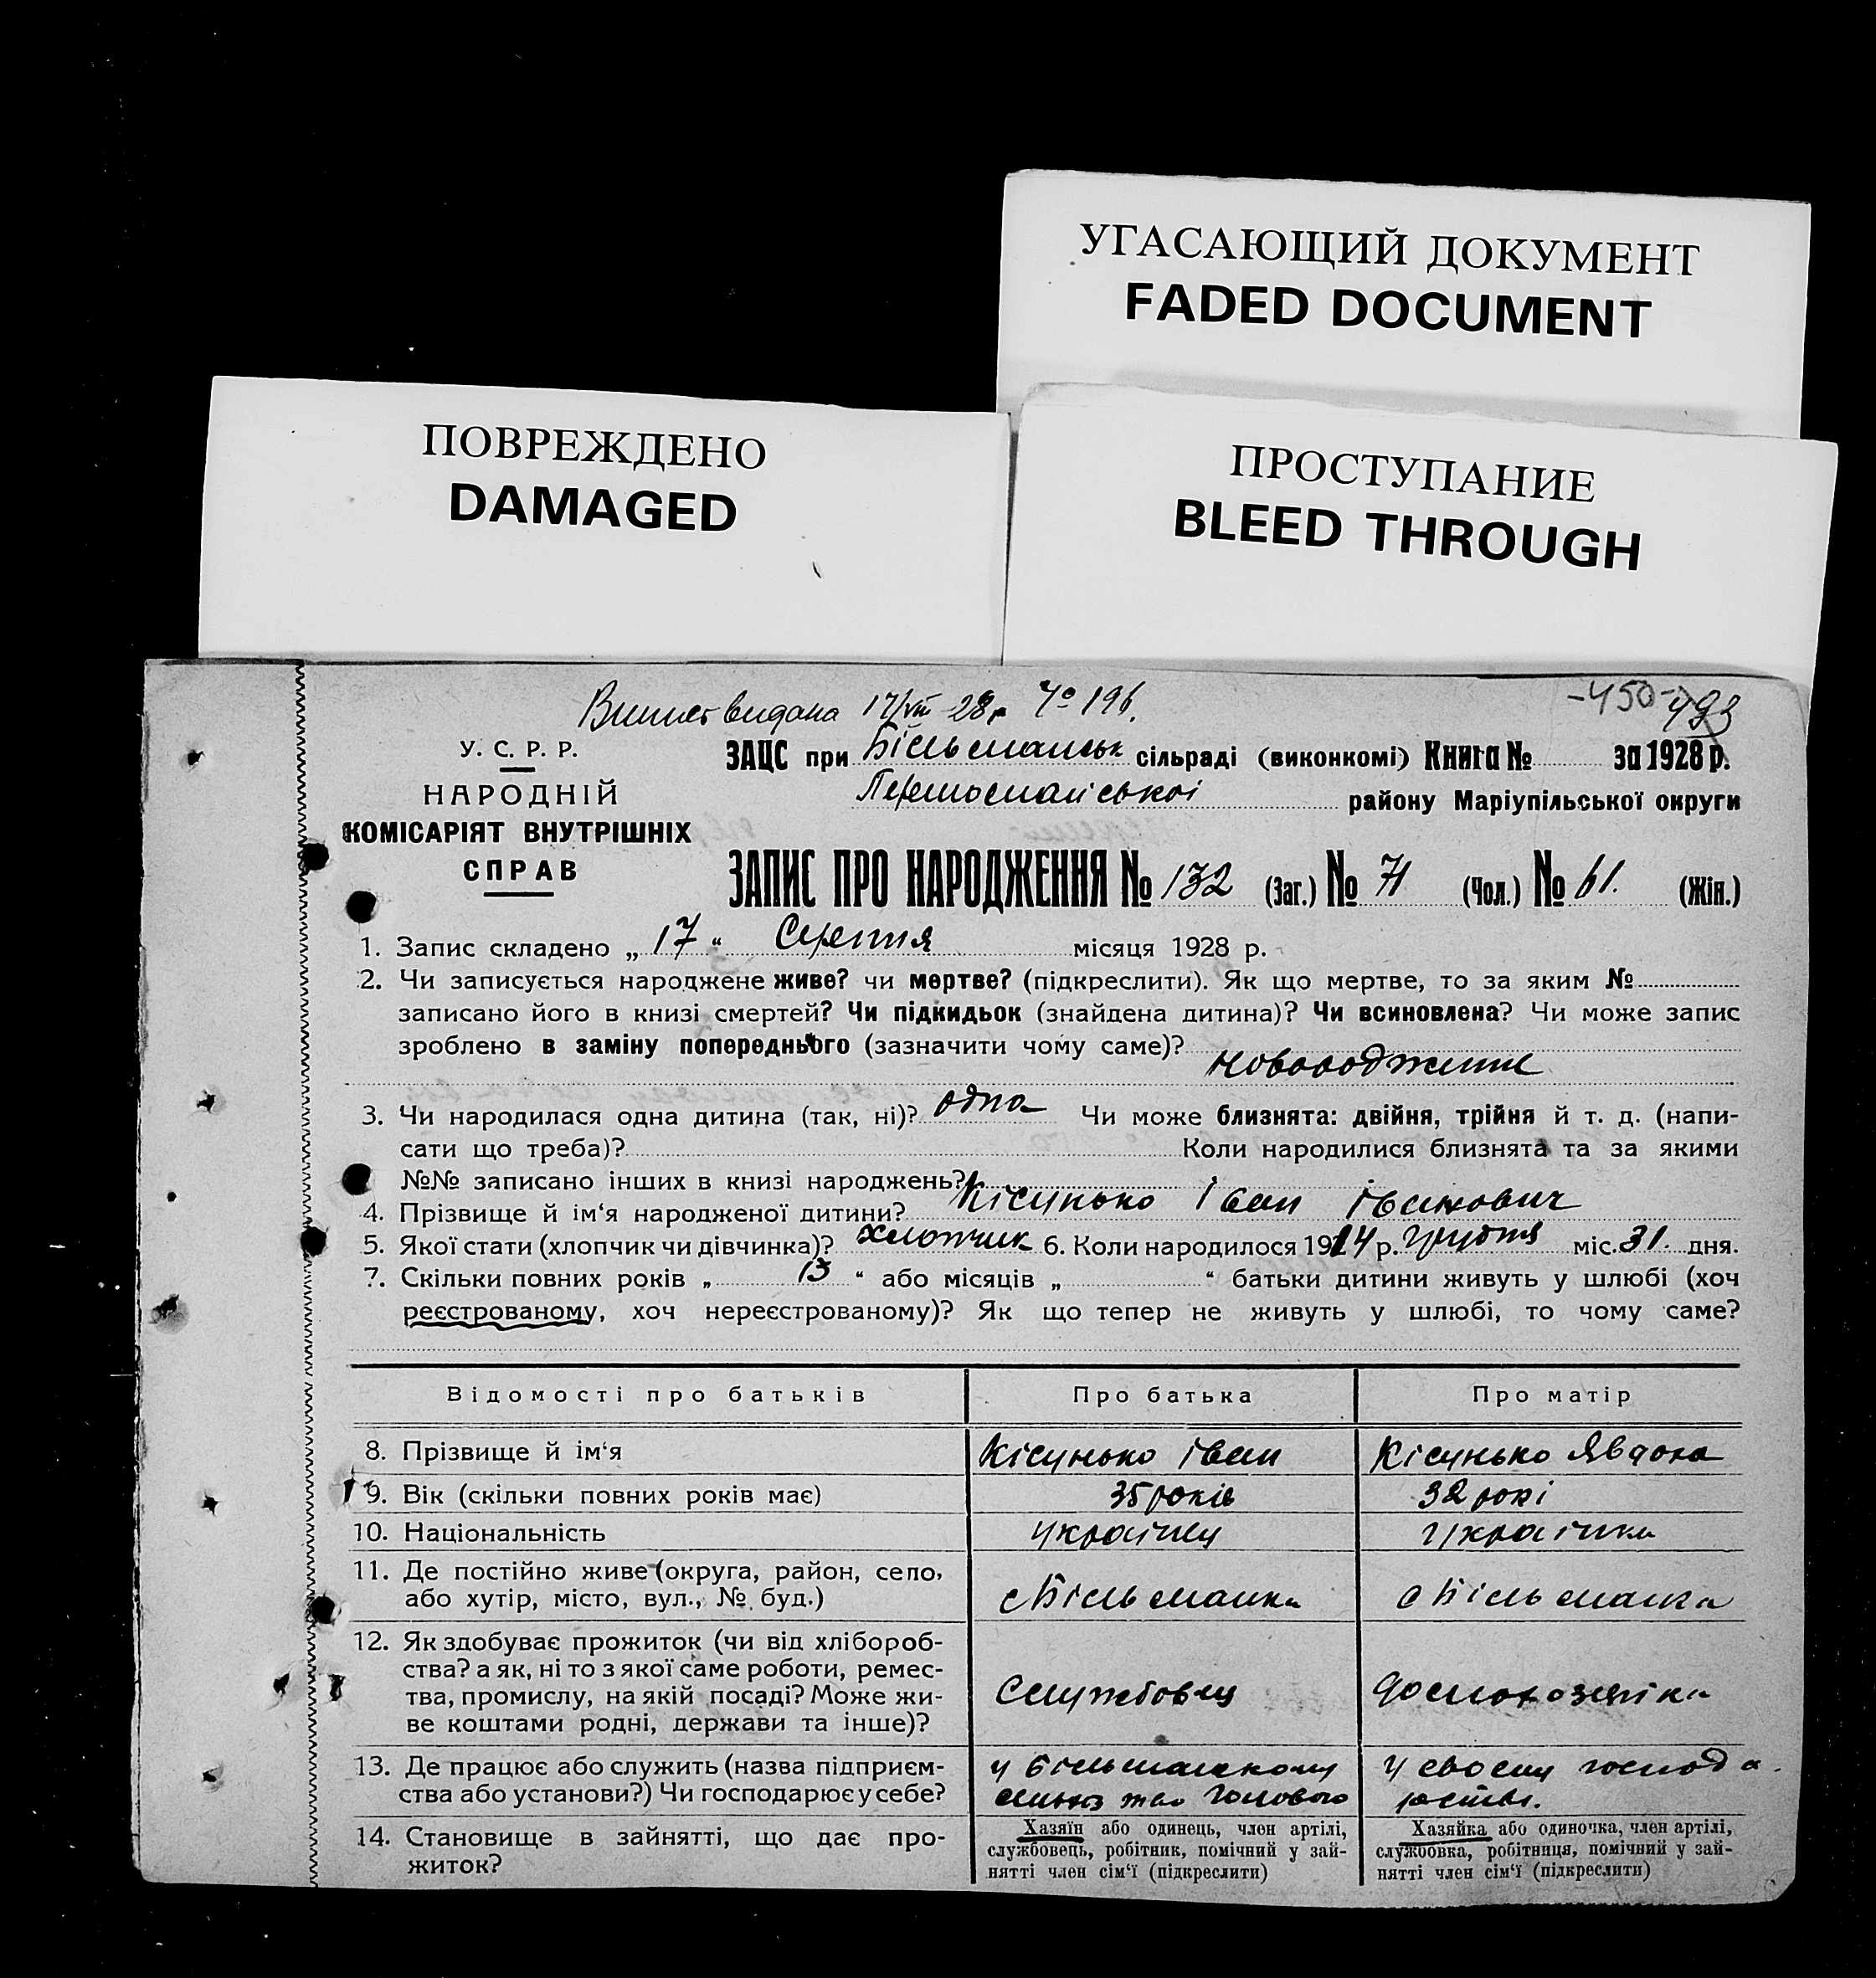 УГАСАЮЩИЙ ДОКУМЕНТ
FADED DOCUMENT
ПОВРЕЖДЕНО
DAMAGED
ПРОСТУПАНИЕ
BLEED THROUGH
видана 17/VIII 28 р № 196.
-450- 493
У. С. Р. Р.
НАРОДНІЙ
КОМІСАРІЯТ ВНУТРІШНІХ
СПРАВ
ЗАЦС при Більманськ сільраді (виконкомі) Книга № за 1928 р.
району Маріупільської округи
ЗАПИС ПРО НАРОДЖЕННЯ № 132 (Заг.) № 71 (Чол.) № 61. (Жін.)
1. Запис складено „ 17 “ Серпня місяця 1928 р.
2. Чи записується народжене живе? чи мертве? (підкреслити). Як що мертве, то за яким №
записано його в книзі смертей? Чи підкидьок (знайдена дитина)? Чи всиновлена? Чи може запис
зроблено в заміну попереднього (зазначити чому саме)?
3. Чи народилася одна дитина (так, ні)? одна Чи може близнята: двійня, трійня й т. д. (напи-
сати що треба)? Коли народилися близнята та за якими
№№ записано інших в книзі народжень?
4. Прізвище й ім‘я народженої дитини? Кісунько Іван Іванович
5. Якої стати (хлопчик чи дівчинка)? хлопчик 6. Коли народилося 1914 р. грудня міс. 31. дня.
7. Скільки повних років „ 13 “ або місяців „ “ батьки дитини живуть у шлюбі (хоч
реєстрованому, хоч нереєстрованому)? Як що тепер не живуть у шлюбі, то чому саме?
Відомості про батьків Про батька Про матір
8. Прізвище й ім‘я Кісунько Іван Кісунько Явдоха
9. Вік (скільки повних років має) 35 років 32 рокі
10. Національність українец українка
11. Де постійно живе (округа, район, село,
або хутір, місто, вул., № буд.) с Більманка с Більманка
12. Як здобуває прожиток (чи від хлібороб-
ства? а як, ні то з якої саме роботи, ремес-
тва, промислу, на якій посаді? Може жи-
ве коштами родні, держави та інше)?
Службовец домохозяіка
13. Де працює або служить (назва підприєм-
ства або установи?) Чи господарює у себе?
у Більманкому
головою
у своему господа
рстві.
14. Становище в зайнятті, що дає про-
житок?
Хазяїн або одинець, член артілі,
службовець, робітник, помічний у зай-
нятті член сім‘ї (підкреслити)
Хазяйка або одиночка, член артілі,
службовка, робітниця, помічний у зай-
нятті член сім‘ї (підкреслити)